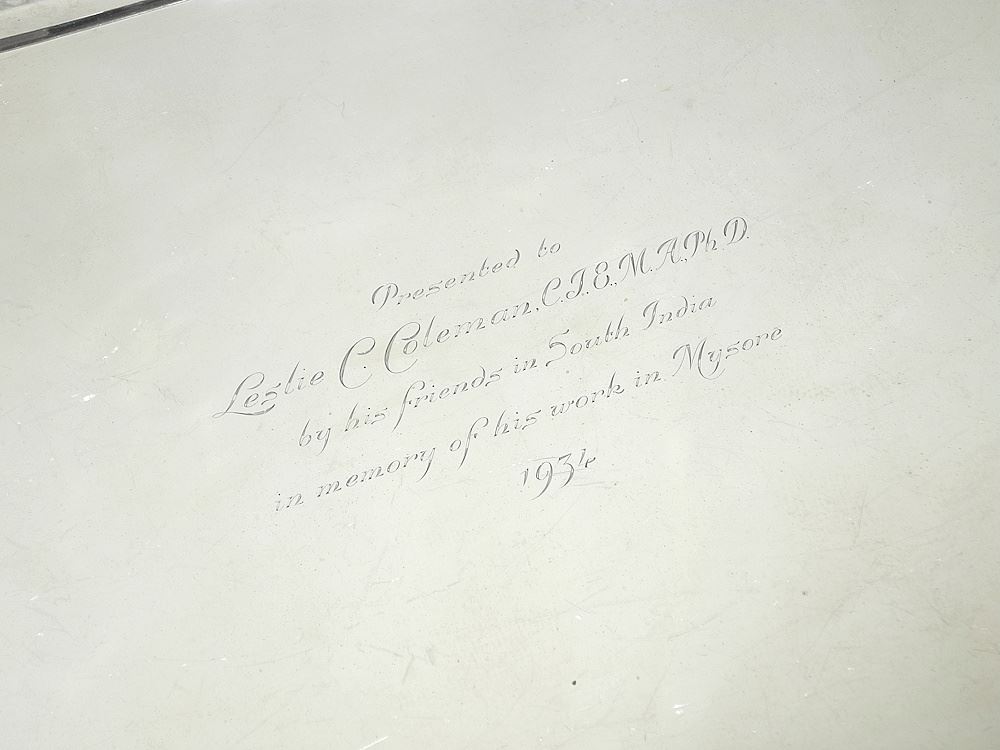 Presented to
Leslie C. Coleman, C.I.E., M.A., Ph.D.
by his friends in South India
in memory of his work in Mysore
1934